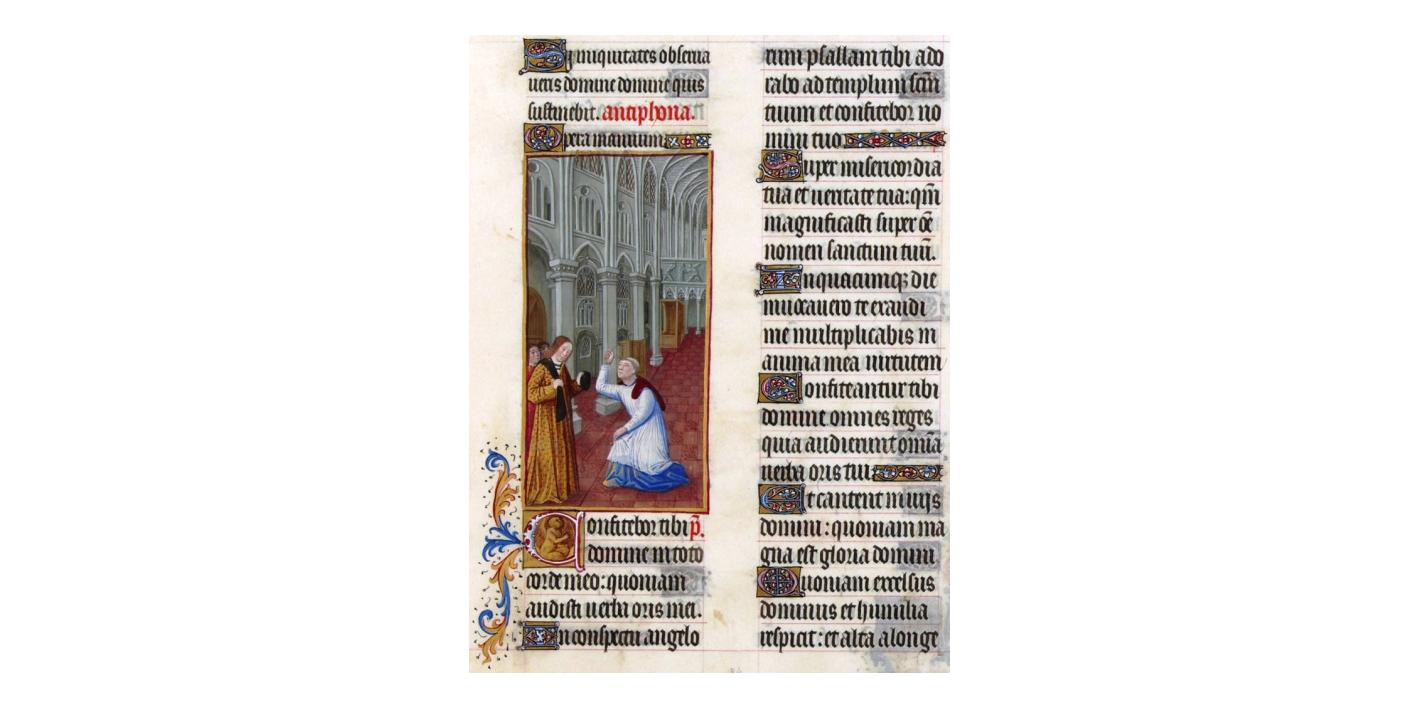 Si iniquitates obserua
ueris domine domine quis
sustinebit. antiphona.
Opera manuum
Confitebor tibi p̄.
domine in toto
corde meo: quoniam
audisti uerba oris mei.
In conspectu angelo
rum psallam tibi ado
rabo ad templum scm̄
tuum et confitebor no
mini tuo
Super misericordia
tua et ueritate tua: qm̄
magnificasti super oē
nomen sanctum tuū.
In quacumq; die
inuocauero te exaudi
me multiplicabis in
anima mea uirtutem
Confiteantur tibi
domine omnes reges
quia audierunt omīa
uerba oris tui
Et cantent in uijs
domini: quoniam ma
gna est gloria domini
Quoniam excelsus
dominus et humilia
respicit: et alta alonge